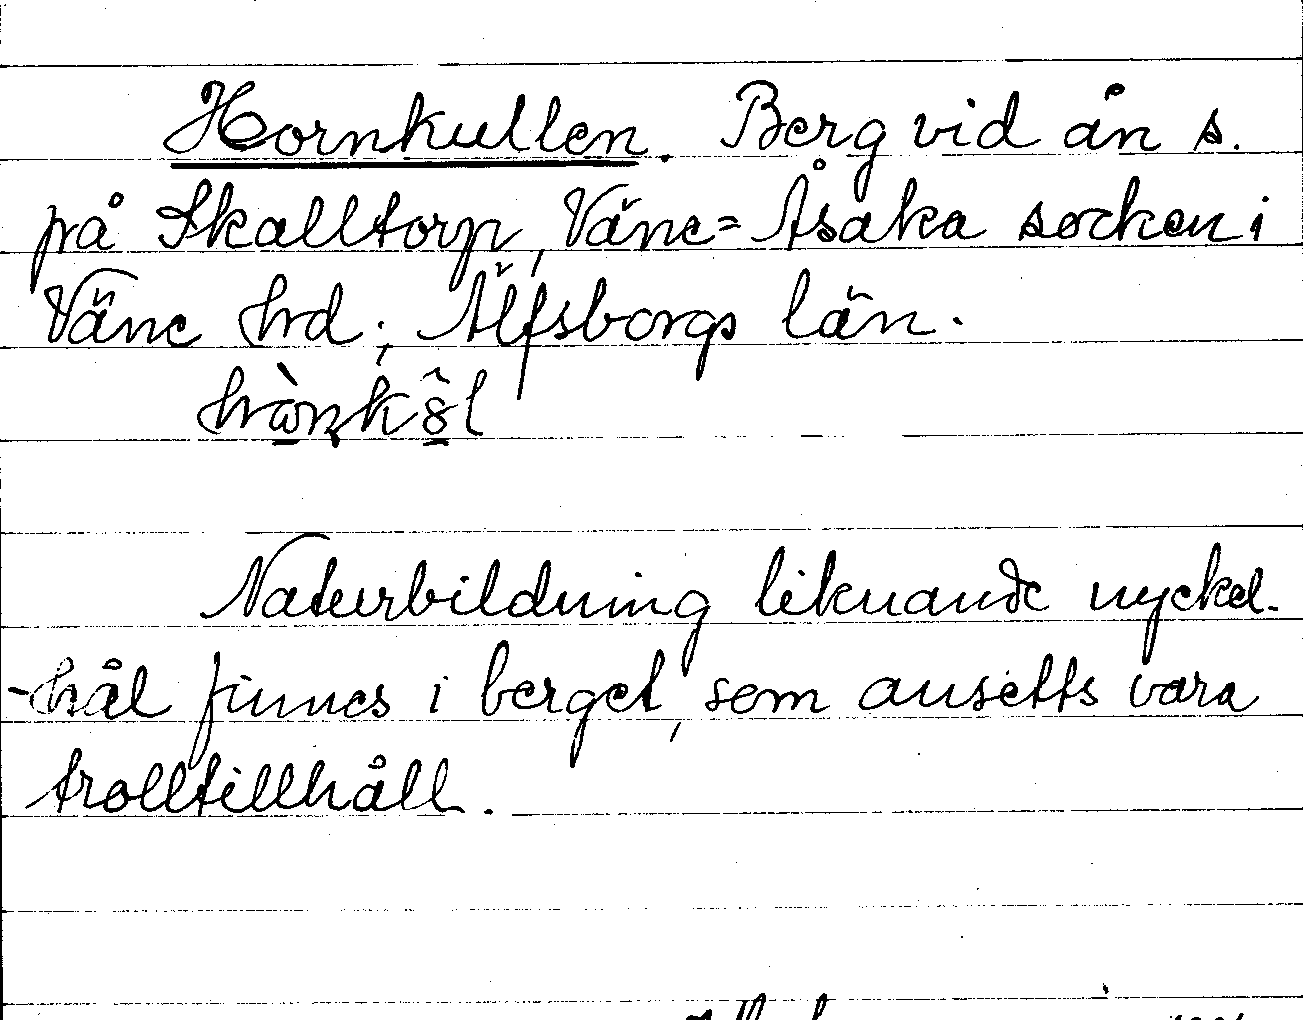 Hornkullen. Berg vid ån s.
på Skalltorp, Väne=Åsaka socken i
Väne hrd; Älfsborgs län.
Naturbildning liknande nyckel-
-hål finnes i berget, som ansetts vara
trolltillhåll.